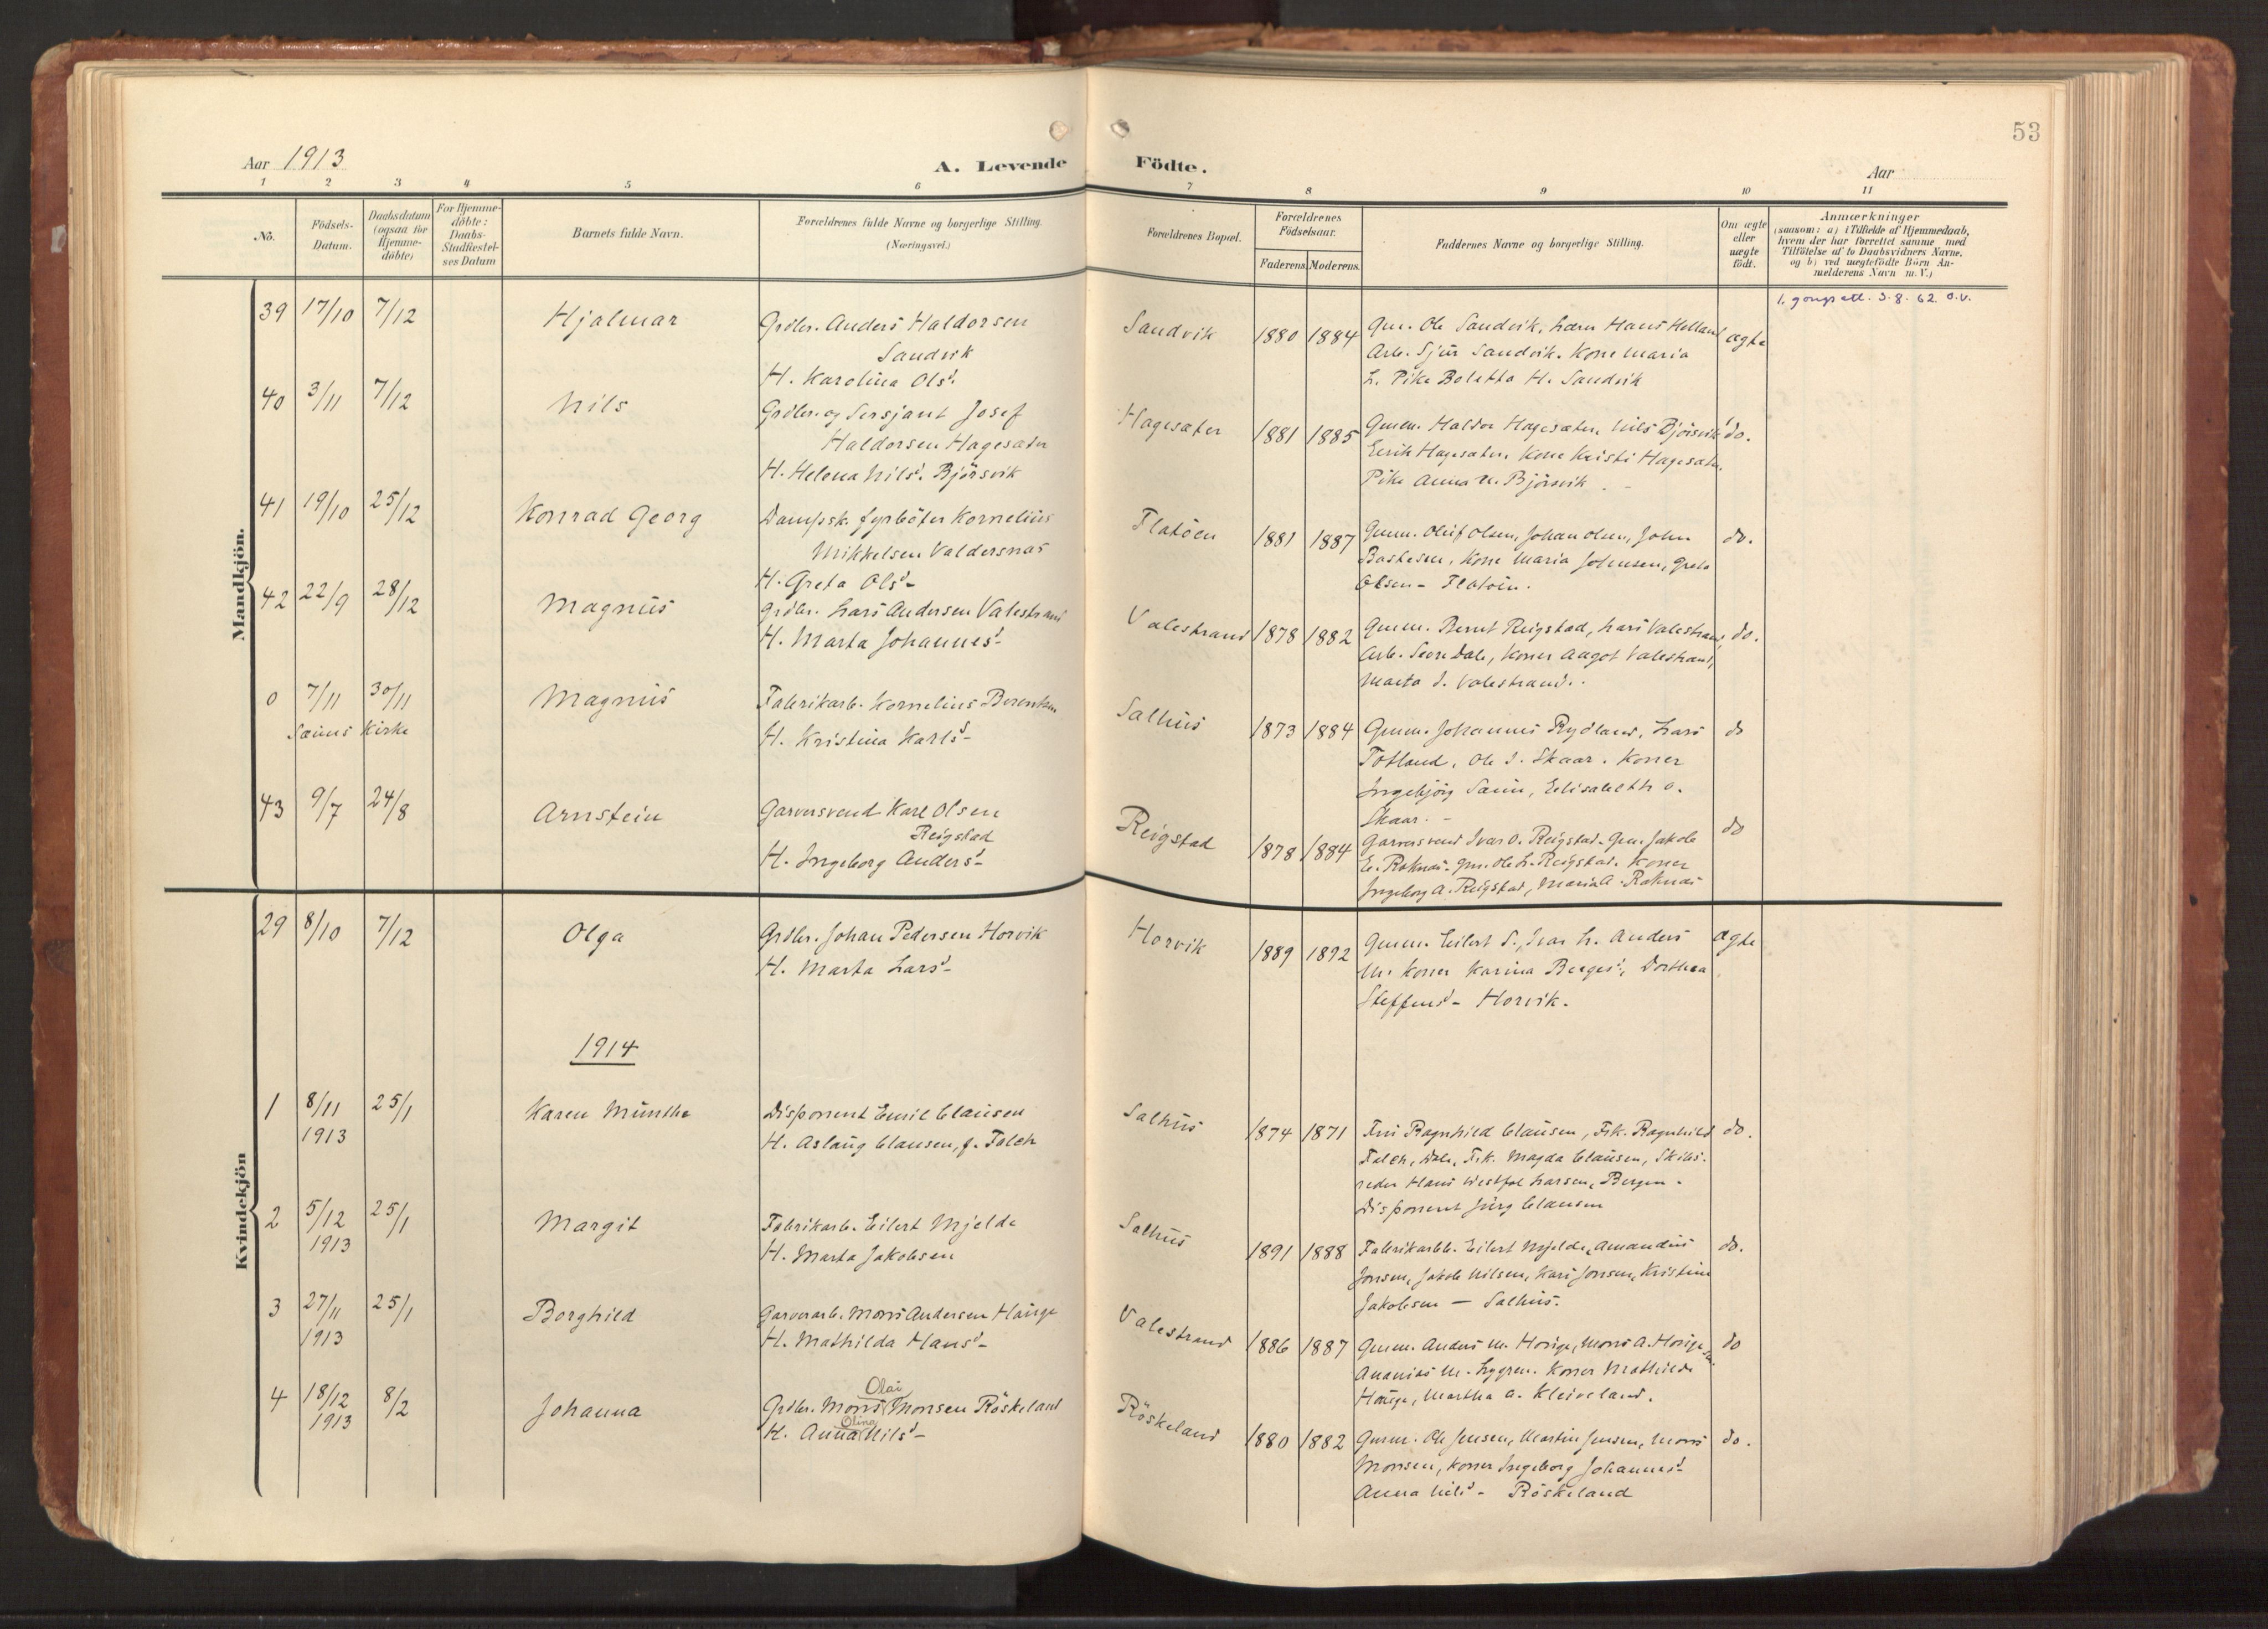 53
Aar 1913
A. Levende Födte.
Aar
1 2 3 4 5 6 7 8 9 10 11
No.
Födsels-
Datum.
Daabsdatum
(ogsaa for
Hjemme-
döbte)
For Hjemme-
döbte:
Daabs-
Stadfæstel-
ses Datum
Barnets fulde Navn.
Forældrenes fulde Navne og borgerlige Stilling.
(Næringsvei.)
Forældrenes Bopæl.
Forældrenes
Födselsaar.
Faderens. Moderens.
Faddernes Navne og borgerlige Stilling.
Om ægte
eller
uægte
født.
Anmærkninger
(saasom: a) i Tilfælde af Hjemmedaab,
hvem der har forrettet samme med
Tilföielse af to Daabsvidners Navne.
og b) ved uægtefödte Börn An-
melderens Navn m. V.)
Mandkjön.
39 17/10 7/12 Hjalmar
Grdbr. Anders Haldorsen
Sandvik
H. Karolina Olsd.
Sandvik 1880 1884
Gm. Ole Sandvik, Hans Helland
Arb. Sjur Sandvik. Kone Maria
L. Pike Boletta H. Sandvik
ægte
1. gongs att. 3.8.62. O.V.
40 3/11 7/12 Nils
Grdbr. og Sersjant Josef
Haldorsen Hagesæter
H. Helena Nilsd. Björsvik
Hagesæter 1881 1885
Gmm. Haldor Hagesæter, Nils Björsvik
Eirik Hagesæter, Kone Kristi Hagesæter,
Pike Anna N. Björsvik. -
do.
41 19/10 25/12 Konrad Georg
Dampsk. fyrböter Kornelius
Mikkelsen Valdersnæs
H. Greta Olsd-
Flatöen 1881 1887
Gmm. Oluf Olsen, Johan Olsen, John
Kone Maria Johnsen, Greta
Olsen - Flatöen.
do.
42 22/9 28/12 Magnus
Grdbr. Lars Andersen Valestrand
H. Marta Johannesd-
Valestrand 1878 1882
Gmm. Bernt Reigstad, Lars Valestrand,
Arb. Dale, Koner Aagot Valestrand,
Marta J. Valestrand.
do.
0 7/11 30/11 Magnus
Sæims Kirke
Fabrikarb. Kornelius Berentsen
H. Kristina Karlsd-
Salhus 1873 1884
Gmm. Johannes Rydland, Lars
Totland, Ole J. Skaar. Koner
Ingebjörg Sæim, Elisabeth O.
Skaar. -
do
43 9/7 24/8 Arnstein
Garversvend Karl Olsen
Reigstad
H. Ingeborg Andersd-
Reigstad 1878 1884
Garversvend Ivar O. Reigstad. Gm. Jakob
E. Raknæs. Gm. Ole L. Reigstad. Koner
Ingeborg A. Reigstad, Maria A. Raknæs
do
Kvindekjön
29 8/10 7/12 Olga
Grdbr. Johan Pedersen Horvik
H. Marta Larsd-
Horvik 1889 1892
Gmm. Eilert S., Ivar L. Anders
M. Koner Karina Dorthea
Steffensd- Horvik.
ægte
1914
1 8/11 25/1 Karen Münthe
1913
Disponent Emil Clausen
H. Aslaug Clausen, f. Falch
Salhus 1874 1871
Fru Ragnhild Clausen, Frk. Ragnhild
Falch, Dale, Frk. Magda Clausen, Skibs-
reder Hans Westfal Larsen, Bergen.
Disponent Jürg Clausen
do.
2 5/12 25/1 Margit
1913
Fabrikarb. Eilert Mjelde
H. Marta Jakobsen
Salhus 1891 1888
Fabrikarbb. Eilert Mjelde, Amandus
Jonsen, Jakob Nilsen, Kari Jonsen, Kristine
Jakobsen - Salhus.
do.
3 27/11 25/1 Borghild
1913
Garverarb. Mons Andersen Hauge
H. Mathilda Hansd-
Valestrand 1886 1887
Gmm. Anders M. Hauge, Mons A. Hauge
Ananias M. Koner Mathilde
Hauge, Martha A. Kleiveland.
do
4 18/12 8/2 Johanna
1913
Olai
Grdbr. Mons Monsen Röskeland
Olina
H. Anna Nilsd-
Röskeland 1880 1882
Gmm. Ole Jensen, Martin Jensen, Mons
Monsen, Koner Ingeborg Johannesd-
Anna Nilsd- Röskeland
do.